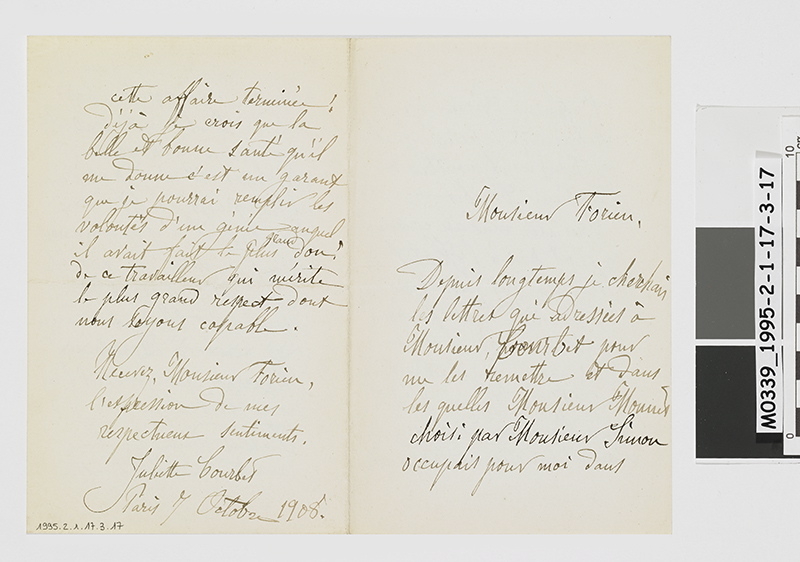 Monsieur Forien,
Depuis longtemps je cherchais
les lettres que adressées à
Monsieur, Courbet pour
me les remettre et dans
les quelles Monsieur
choisi par Monsieur Simon
occupait pour moi dans
cette affaire terminée!
déjà je crois que la
belle et bonne santé qu'il
me donne c'est un garant
que je pourrai remplir les
volontés d'un génie auquel
il avait fait le plus grand don!
de ce travailleur qui mérite
le plus grand respect dont
nous soyons capable.
Recevez, Monsieur Forien,
l'expression de mes
respectueux sentiments.
Juliette Courbet
Paris 7 Octobre 1908.
1995.2.1.17.3.17
M0339_1995-2-1-17-3-17
10
0